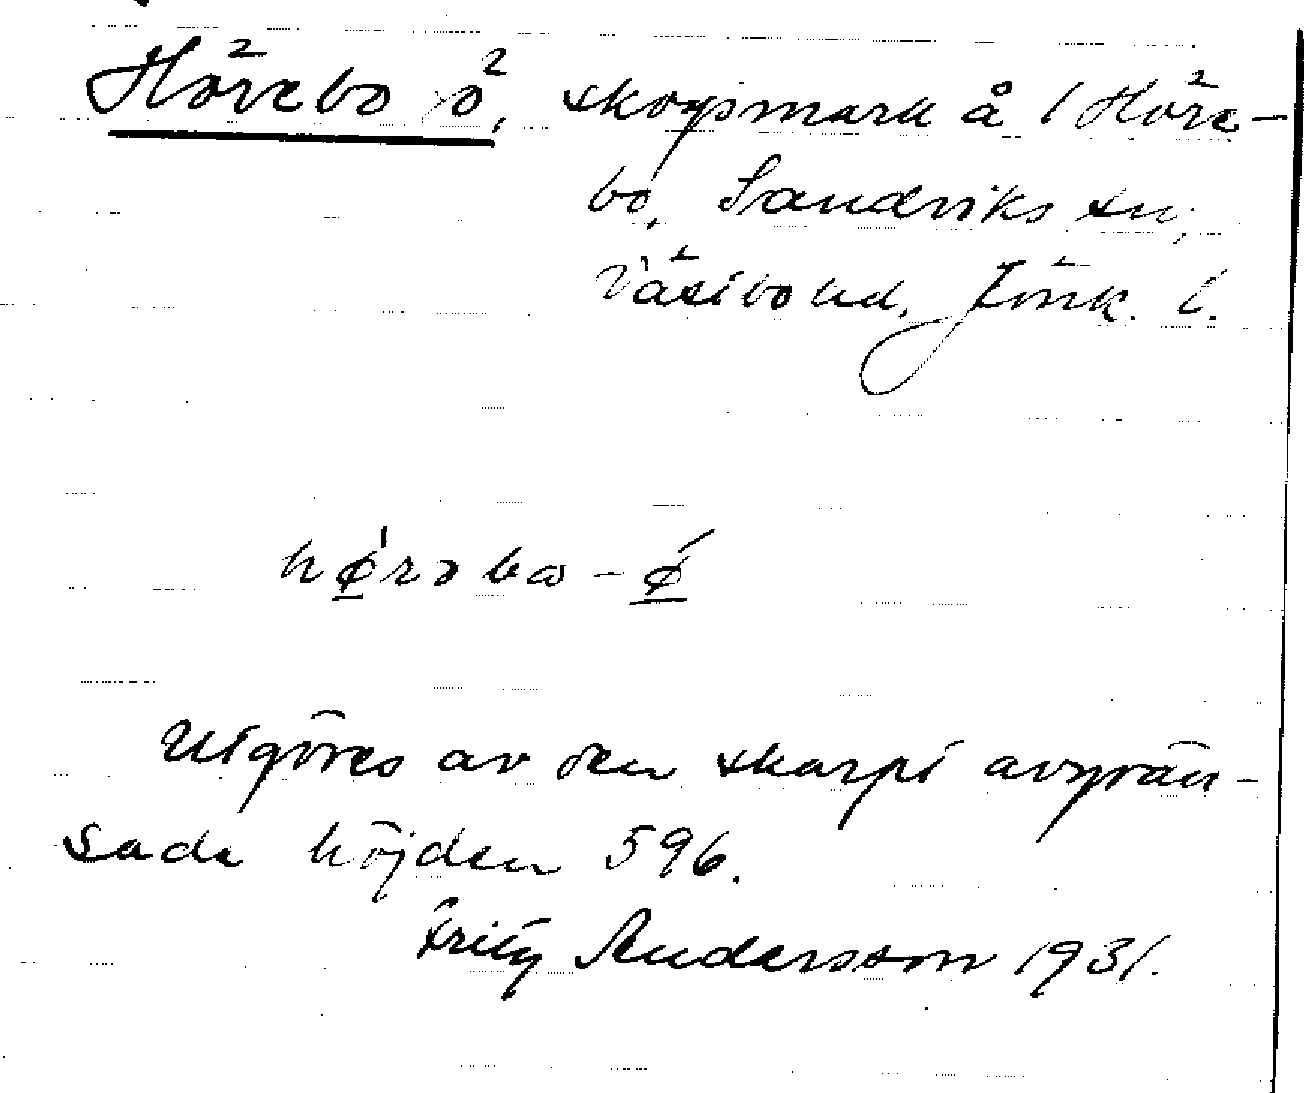 Hörebo ö, skogsmark å 1 Höre-
bo, Sandviks sn,
Västbo hd, Jönk. l.
hø̲rəbω-ǿ̲
Utgöres av den skarpt avgrän-
sade höjden 596.
Fritz Andersson 1931.